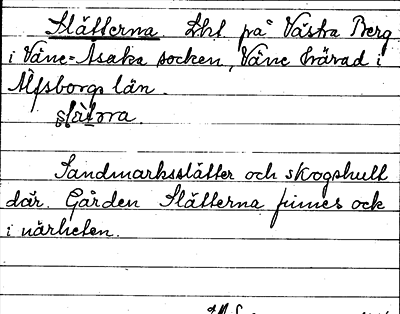 Slätterna Lht. på Västra Berg
i Väne-Åsaka socken, Väne härad i
Älfsborgs län.
slätᶏra.
Sandmarksslätter och skogshult
där. Gården Slätterna finnes ock
i närheten.